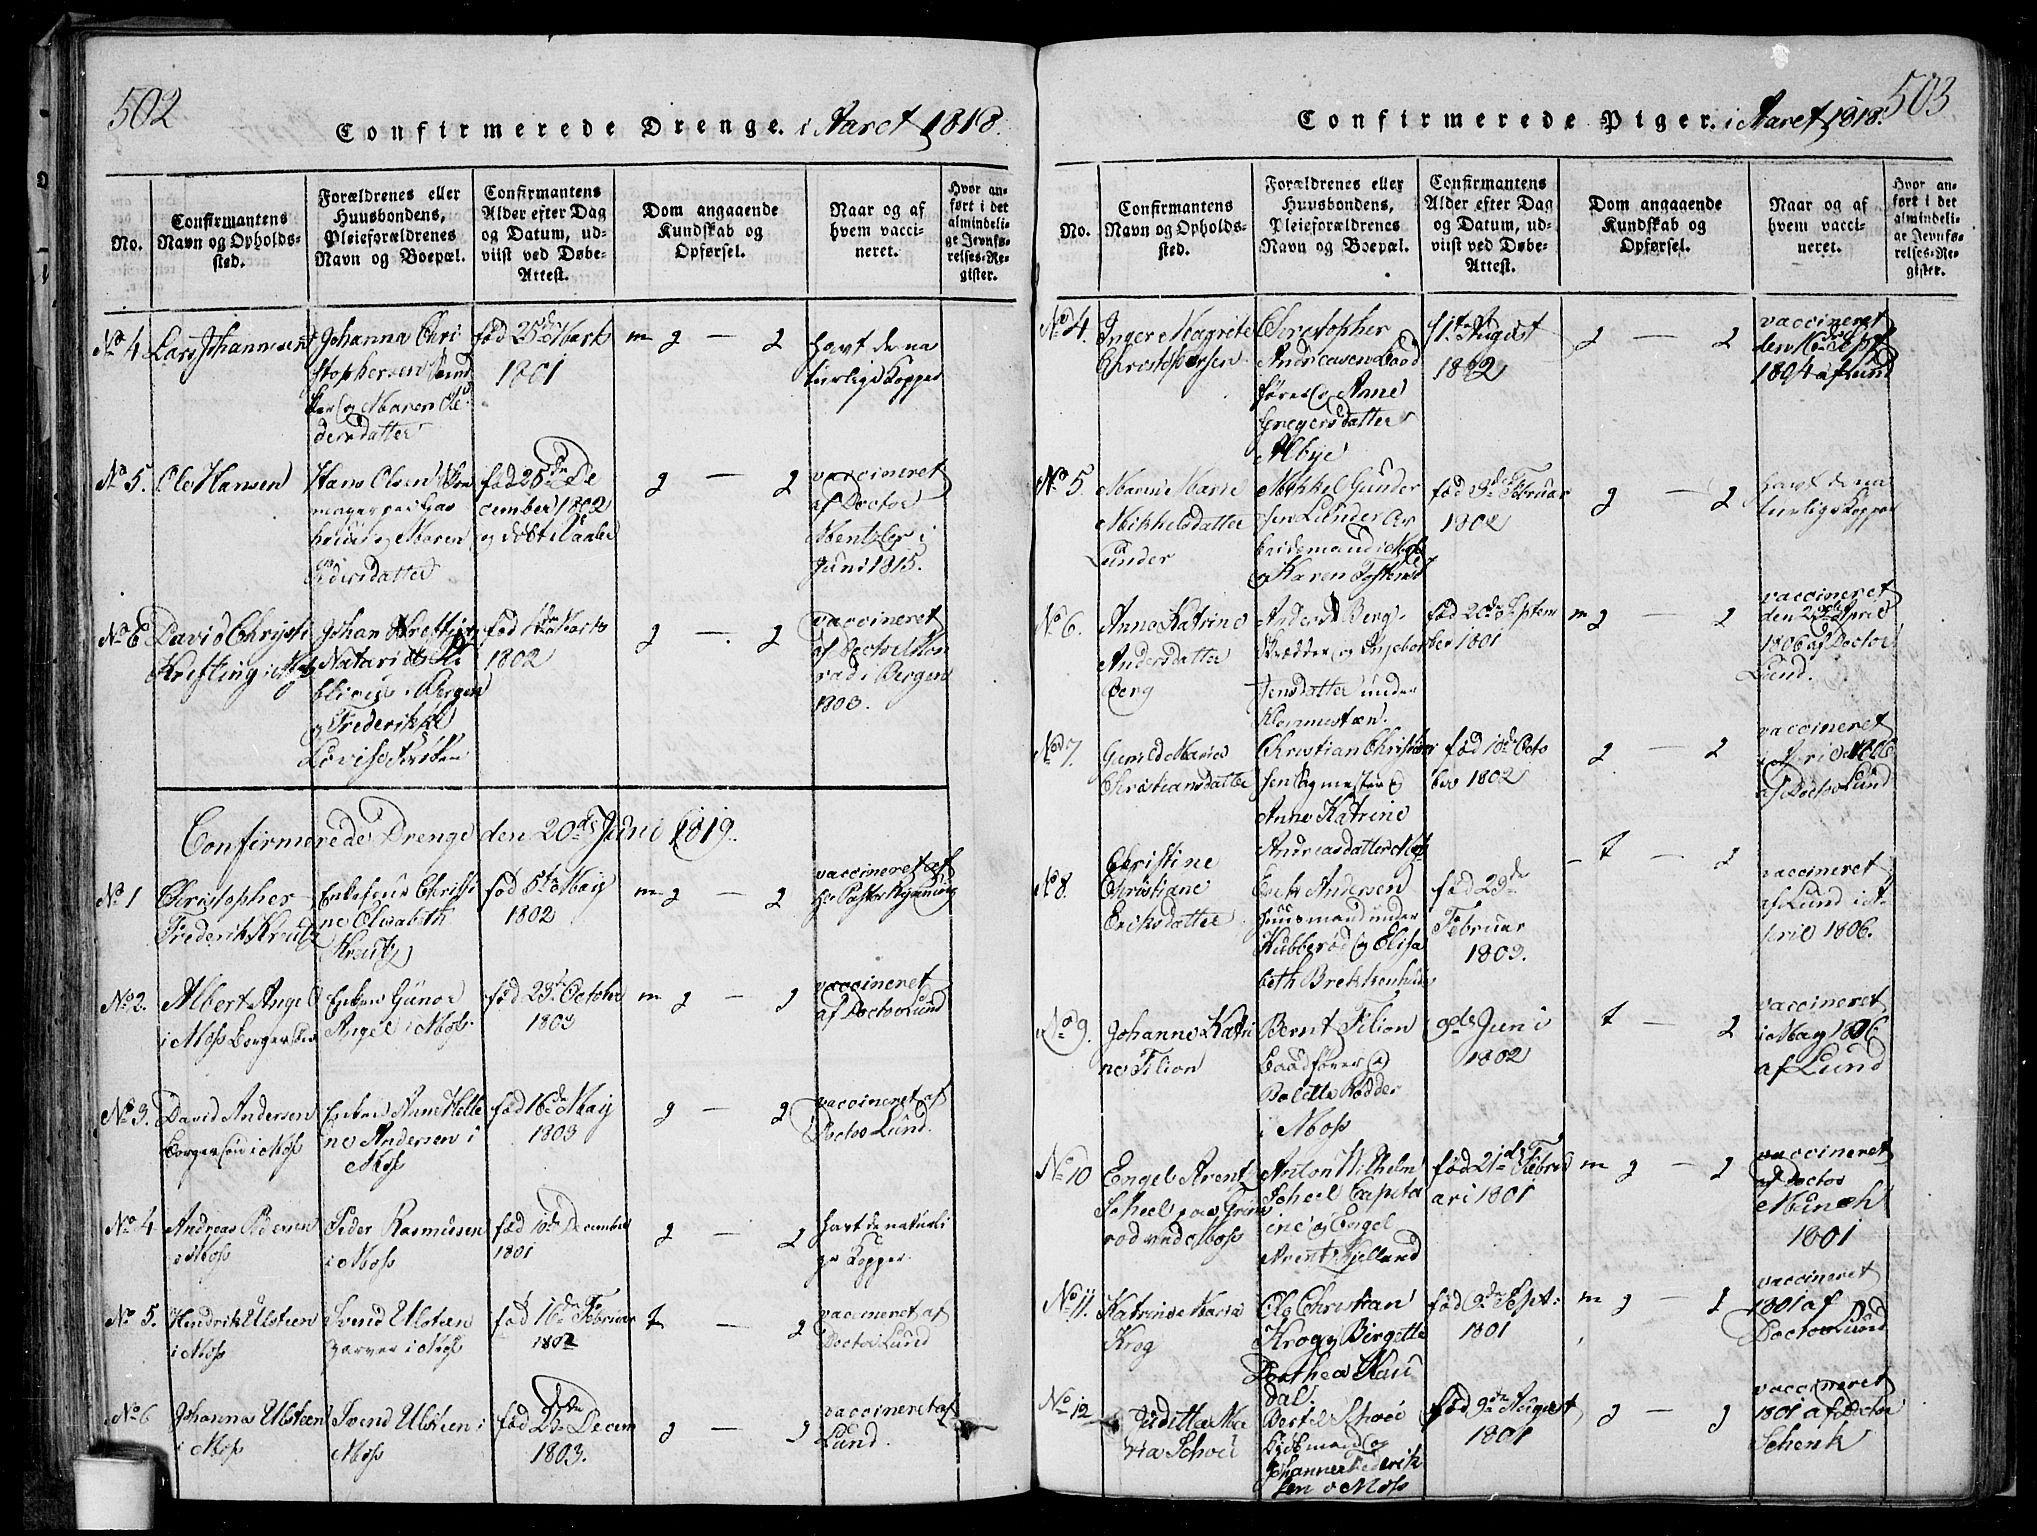 502
Confirmerede Drenge. i Aaret 1818.
No.
Confirmantens Navn og Opholdssted.
Forældrenes eller Huusbondens, Pleieforældrenes Navn og Boepæl.
Confirmantens Alder efter Dag og Datum, udviist ved Døbe-Attest.
Dom angaaende Kundskab og Opførsel.
Naar og af hvem vaccineret.
Hvor anført i det almindelige Jevnførelses-Register.
No 4
Lars Johannesen
Johanna Chri
stophersen
og Maren
dersdatter
fød 25de Marts
1801
m g — g
havt de na
turlige Kopper
No 5.
Ole Hansen
Hans Olsen
og Maren
Pedersdatter
fød 25de De
cember 1802
vaccineret
af Doctor
Mentzler i
Juni 1815.
g — g
No 6
David Chrysti
Krefting i Moss
Johan Krefting
Notarius Pu
blicus i Bergen
og Frederikke
Lovise
fød 1de Marts
1802
g — g
vaccineret
af Doctor
rad i Bergen
1803.
Confirmerede Drenge den 20de Juni 1819.
No 1
Christopher
Frederik Kreutz
Enkefrue Christi
ne Elisabeth
Kreutz
fød 5te May
1802
m g — g
vaccineret af
Hr Pastor
No 2.
Albert Angel
i Moss Borgersøn
Enken Gunor
Angel i Moss.
fød 23de October
1803
m g — g
vaccineret
af Doctor Lund
No 3.
David Andersen
Borgersøn i Moss
Enken Anne Hele
ne Andersen i
Moss
fød 16de May
1803
g — g
vaccineret af
Doctor Lund.
No 4
Andreas Pedersen
i Moss
Peder Rasmussen
i Moss
fød 10de December
1801
g — g
havt de naturli
ge Kopper.
No 5.
Hendrik Ulsteen
i Moss
Svend Ulsteen
Farver i Moss
fød 16de Februar
1802
t — g
vaccineret af
Doctor Lund
No 6
Johannes Ulsteen
i Moss
Svend Ulsteen i
Moss
fød 23de Decem
1803.
g — g
vaccineret af
Lund.
503
Confirmerede Piger. i Aaret 1818.
No.
Confirmantens Navn og Opholdssted.
Forældrenes eller Huusbondens, Pleieforældrenes Navn og Boepæl.
Confirmantens Alder efter Dag og Datum, udviist ved Døbe-Attest.
Dom angaaende Kundskab og Opførsel.
Naar og af hvem vaccineret.
Hvor anført i det almindelige Jevnførelses-Register.
No 4.
Inger Magrete
Christophersen
Christopher
Andreasen Baad
fører og Anne
Gregersdatter
Albye
11te August
1802
g — g
vaccineret
den 16de Sept
1804 af Lund
No 5.
Maren Marie
Mikkelsdatter
Lunder
Mikkel Gunder
sen Lunder Ar
beidsmand i Moss
og Karen
fød 3de Februar
1802
g — g
havt de na
turlige Kopper
No 6.
Anna Katrine
Andersdatter
Berg
Anders Berg
Skrædder og Ingebor
Jensdatter under
fød 20de Septem
ber 1801
m g — g
vaccineret
den 22de April
1806 af Doctor
Lund.
No 7.
Gunild Maria
Christiansdatter
Christian Christian
sen Sagmester og
Anne Katrine
Andreasdatter Moss
fød 10de Octo
ber 1802
g — g
vaccineret
i April
af Doctor Lund
No 8.
Christine
Christiane
Eriksdatter
Erik Andersen
Huusmand under
Kubberød og Elisa
beth
fød 23de
Februar
1803.
t — g
vaccineret
af Lund i A
pril 1806.
No 9.
Johanne Katri
ne Filion
Bernt Filion
Baadfører og
Bolette Rødder
i Moss
9de Juni
1802
t — g
vaccineret
i May 1806
af Lund
No 10
Engel Arent
Scheel paa Grim
rød ved Moss
Anton Wilhelm
Scheel Capita
ine og Engel
Arent Kjelland
fød 21de Febru
ari 1801
m g — g
vaccineret
af Doctor
Münch
1801
No 11.
Katrine Maria
Krog
Ole Christian
Krog og Birgette
Dorthea Kau
dal
fød 9de Sept:
1801
m g — g
vaccineret
1801 af
Doctor Lund
No 12
Juditta Ma
ria Schou
Bertel Schou
Kiøbmand og
Johanne Frederik
sen i Moss
fød 9de August
1801
g — g
vaccineret
1801 af Doctor
Schenk